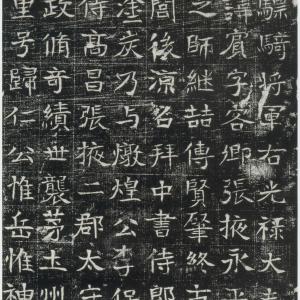 騎将軍右光禄大
諱賓字客卿張掖永平
之師継喆傳賢肇終
後涼召拜中書侍郎
塗炭乃与燉煌公李保
侍髙昌張掖二郡太守
政脩奇績世襲茅土州
里号歸仁公惟岳惟神